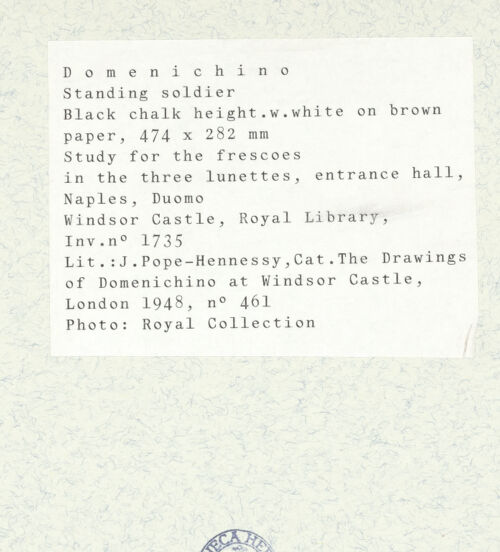 Domenichino
Standing soldier
Black chalk height.w.white on brown
paper, 474 x 282 mm
Study for the frescoes
in the three lunettes, entrance hall,
Naples, Duomo
Windsor Castle, Royal Library,
Inv.nº 1735
Lit.:J.Pope-Hennessy,Cat.The Drawings
of Domenichino at Windsor Castle,
London 1948, nº 461
Photo: Royal Collection